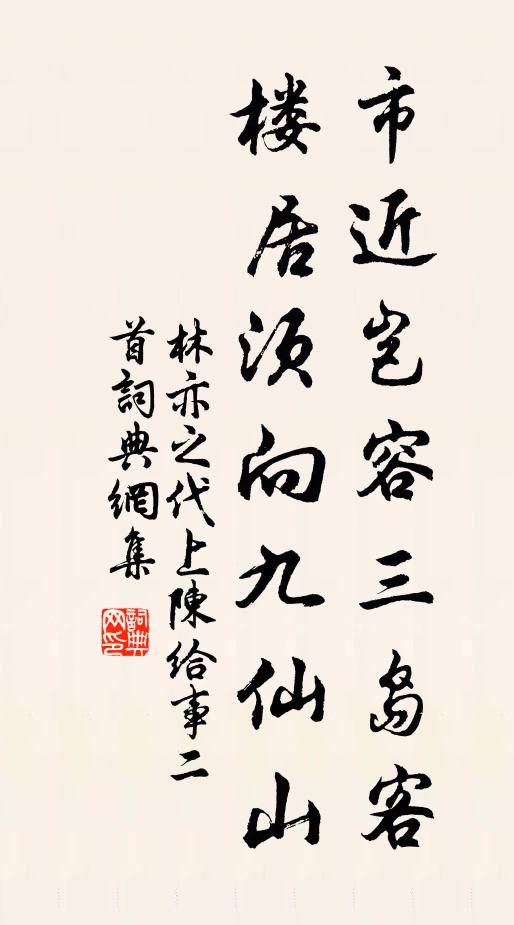 市近岂容三岛客
楼居须向九仙山
林亦之代上陳给事二
首詞典網集
詞典网印